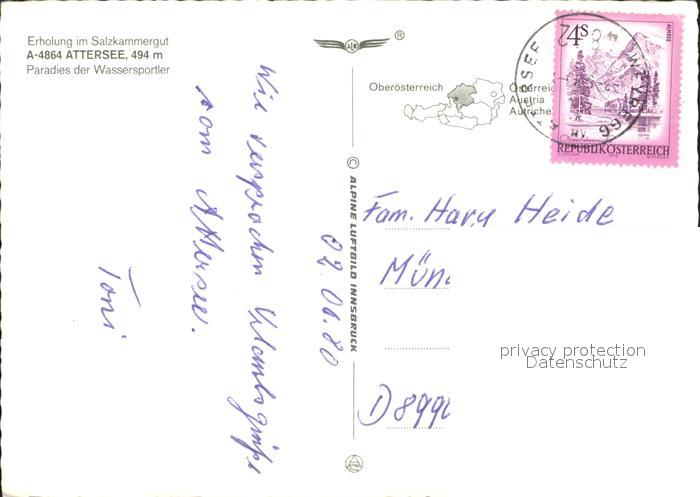 Erholung im Salzkammergut
A-4864 ATTERSEE, 494 m
Paradies der Wassersportler
®
Oberösterreich
Österrei
Austria
Autriche
4S
ALMSEE
REPUBLIK ÖSTERREICH
WEYREGG
AM
© ALPINE LUFTBILD INNSBRUCK
02.01.80
Wie versprochen Urlaubsgrüße
vom Attersee.
Toni
Fam. Heide
Mün
D 8990
privacy protection
Datenschutz